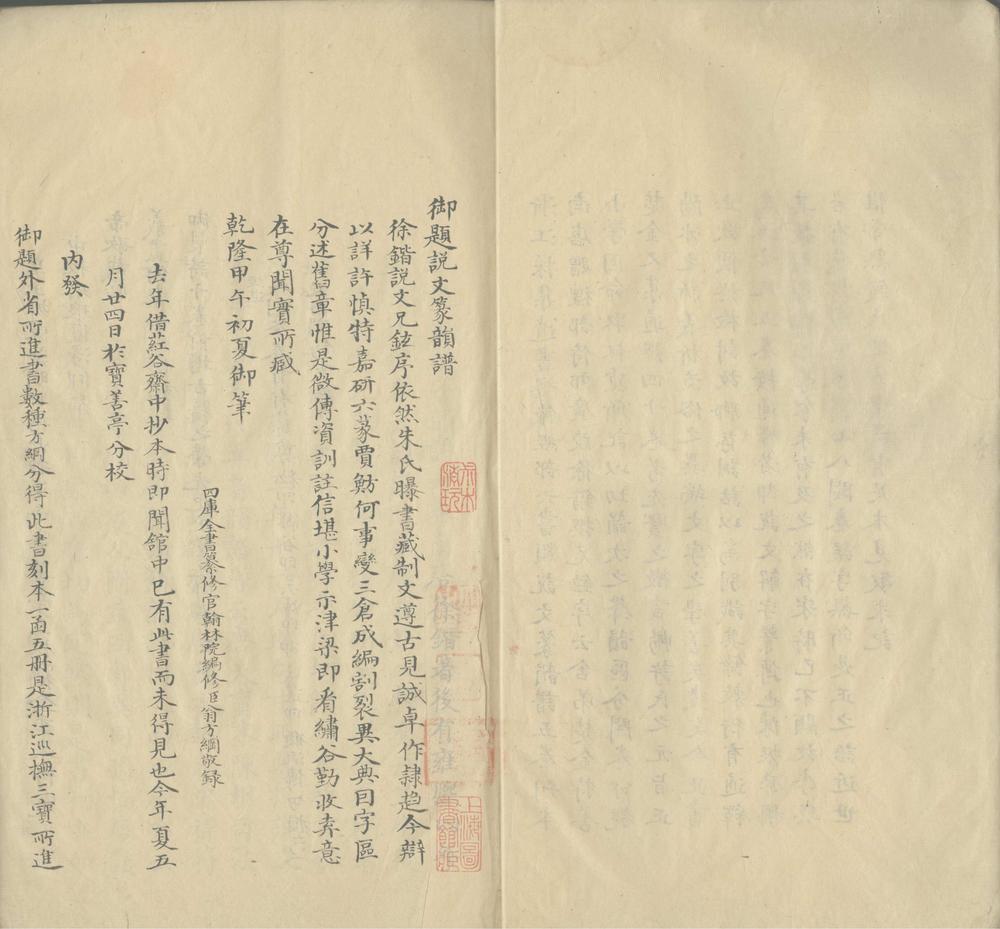 御題說文篆韻譜
徐鍇說文兄鉉序依然朱氏曝書藏制文遵古見誠卓作隸趨今辯
以詳許慎特嘉研六篆賈魴何事變三倉成編割裂異大典曰字區
分述舊章惟是微傳資訓註信堪小學示津梁即看繡谷勤收弆意
在尊聞實所臧
乾隆甲午初夏御筆
四庫全書纂修官翰林院編修臣翁方綱敬録
去年借葒谷齋中抄本時即聞館中已有此書而未得見也今年夏五
月廿四日於寶善亭分校
內發
御題外省所進書數種方綱分得此書刻本一函五册是浙江巡撫三寶所進